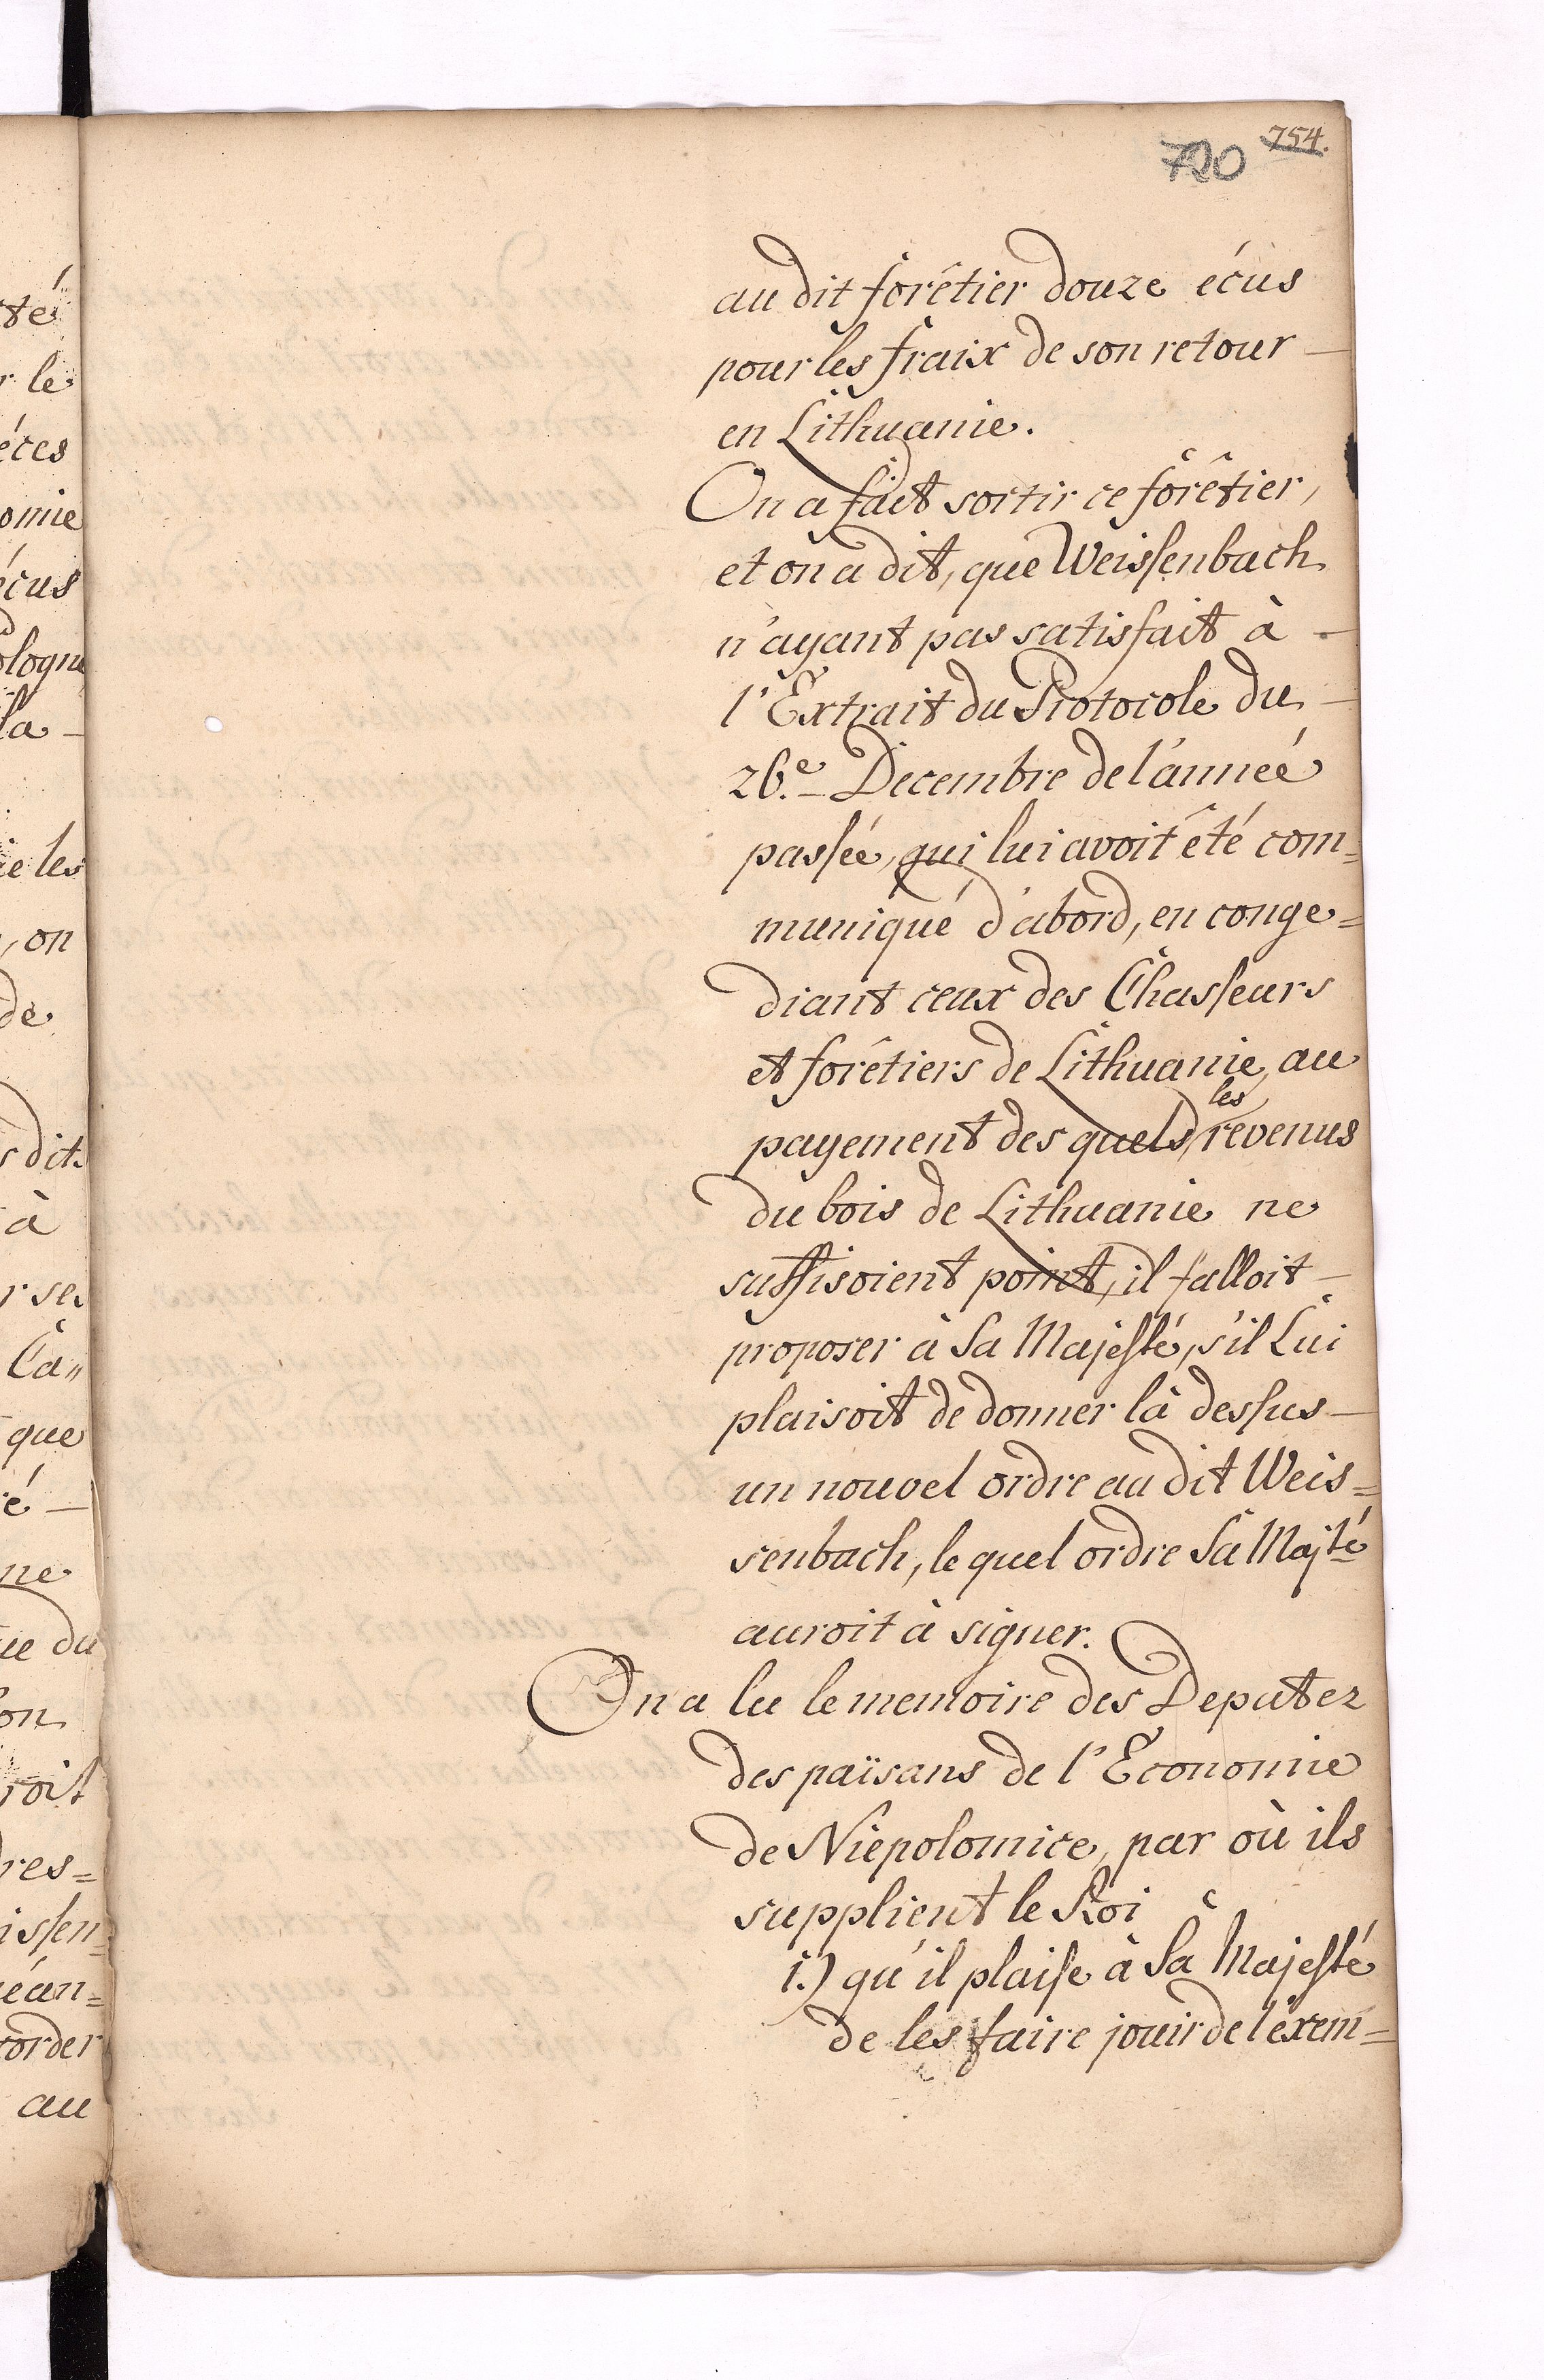 754.
720
au dit forêtier douze écus
pour les fraix de son retour —
en Lithuanie.
On a fait sortir ce forêtier,
et on a dit, que Weissenbach
n'ayant pas satisfait à —
l'Extrait du Protocole du —
26.e Decembre de l'année
passée, qui lui avoit été com=
muniqué d'abord, en conge=
diant ceux des Chasseurs
et forêtiers de Lithuanie, au
les
payement des quels, revenus
du bois de Lithuanie ne
suffisoient point, il falloit —
proposer à Sa Majesté, s'il Lui
plaisoit de donner là dessus —
un nouvel ordre au dit Weis=
senbach, le quel ordre Sa Majté
auroit à signer.
On a lu le memoire des Deputez
des païsans de l'Economie
de Niepolomice, par où ils
supplient le Roi
1.) qu'il plaise à Sa Majesté
de les faire jouir de l'exem=
té
r le
éces
omie
écus
ologne
la —
ie les
, on
de
s dit
à
r se
Ca"
que
é —
ne
ue du
on
roit
dres=
issen=
éan=
corder
au